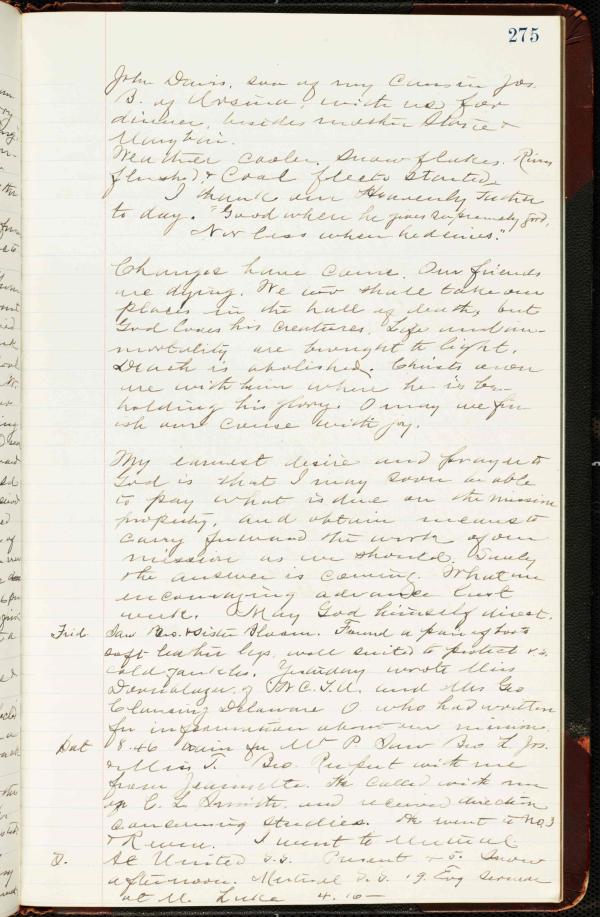 275
John Davis, son of my Cousin Jos.
B. of Ursina, with us for
dinner, besides mother &
Weather cooler, snow flakes. River
flushed, & Coal fleets started.
I thank our Heavenly Father
to day. "Good when he gives supremely good,
Nor less when he denies."
Changes have came. Our friends
are dying. We too shall take our
places in the hall of death, but
God loves his creatures. Life and im-
mortality are brought to light.
Death is abolished. Christs own
are with him where he is be-
holding his glory. O may we fin-
ish our course with joy.
My earnest desire and prayer to
God is that I may soon be able
to pay what is due on the mission
property, and obtain means to
carry forward the work of our
mission as we should. Surely
the answer is coming. What an
encouraging advance last
week. May God himself direct.
Frid Saw Bro. & Sister Slosson. Found a pair of boots
soft leather legs, well suited to protect
cold ankles. Yesterday wrote Miss
of W.C.T.U. and Mrs Geo
Clansing Delaware O. who had written
for information about our mission.
Sat 8.46 train for Mt P. Saw Bro L. Jos.
& Miss T. Bro. with me
from Jeannette. He called with me
C. L. Smith, and received direction
concerning studies. He went to No. 3
& I went to Mutual
S. At United S.S. Present Snow
afternoon. Mutual S.S. 19. Evg sermon
at M. Luke 4.16-